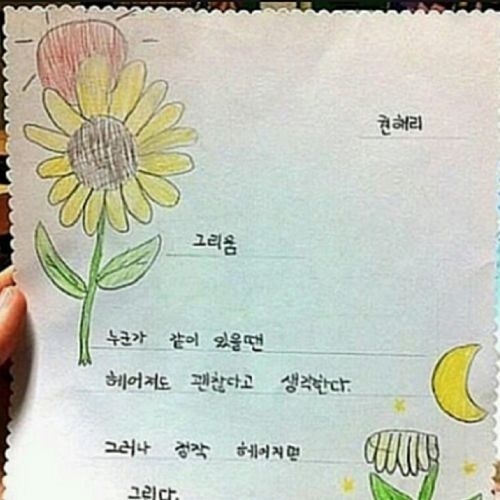 권혜리
그리움
누군가 같이 있을땐
헤어져도 괜찮다고 생각한다.
그러나 정작 헤어지면
그리다.